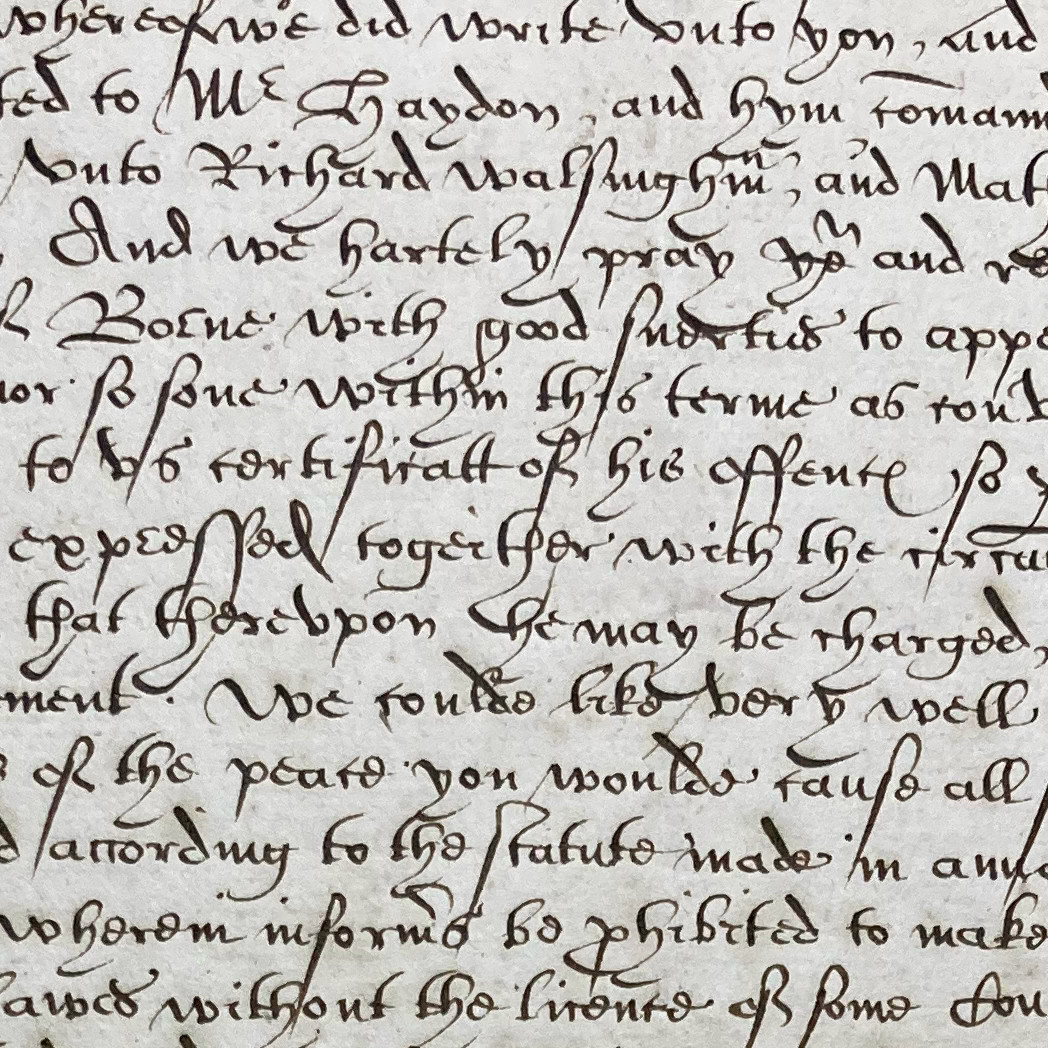 whereof we did write vnto you, and
ted to Mr Haydon, and hym comann
vnto Richard Walsinghm, and Mat
And we hartely pray yow and re
of Borne with good suerties to appe
nor so sone within this terme as conv
to vs certificatt of his offence so
expressed together with the circu
that therevpon he may be charged,
ment. We coulde like very well
of the peace you woulde cause all
d according to the statute made in anno
wherein informrs be phibited to make
lawes without the licence of some Cou